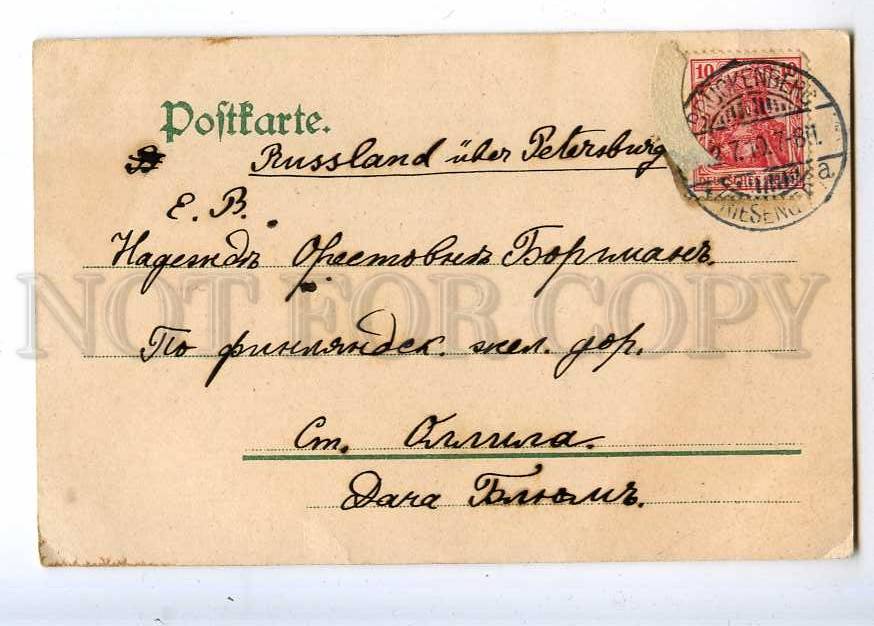 Postkarte.
Russland über Petersburg
Е. В.
Надеждѣ Орестовнѣ Боргманъ.
По финляндск. жел. дор.
Ст. Оллила.
Дача Блюмъ.
10 10
BRÜCKENBERG
7-8N.
a
NOT FOR COPY